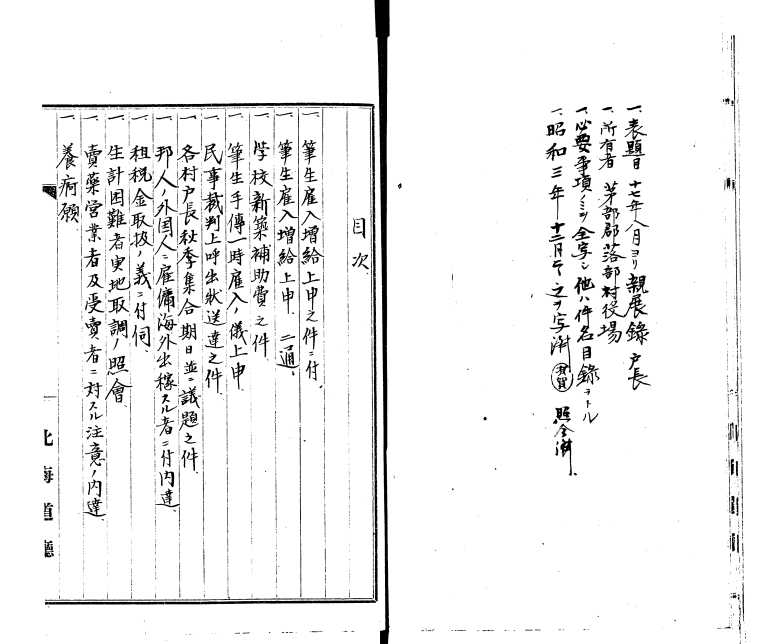 一、表題 自十七年八月ヨリ 親展録 戸長
一、所有者 茅部郡落部村役場
一、必要事項ノミヲ全写シ他ハ件名目録ヲトル
一、昭和三年十二月 之ヲ写済 照合済
目次
一、筆生雇入増給上申之件ニ付
一、筆生雇入増給上申 二通
一、学校新築補助費之件
一、筆生手傳一時雇入ノ儀上申
一、民事裁判上呼出状送達之件
一、各村戸長秋季集合期日並ニ議題之件
一、邦人ノ外国人ニ雇傭海外出稼スル者ニ付内達
一、租税金取扱ノ義ニ付伺
一、生計困難者実地取調ノ照會
一、賣藥営業者及受賣者ニ対スル注意ノ内達
一、養病願
北海道廳